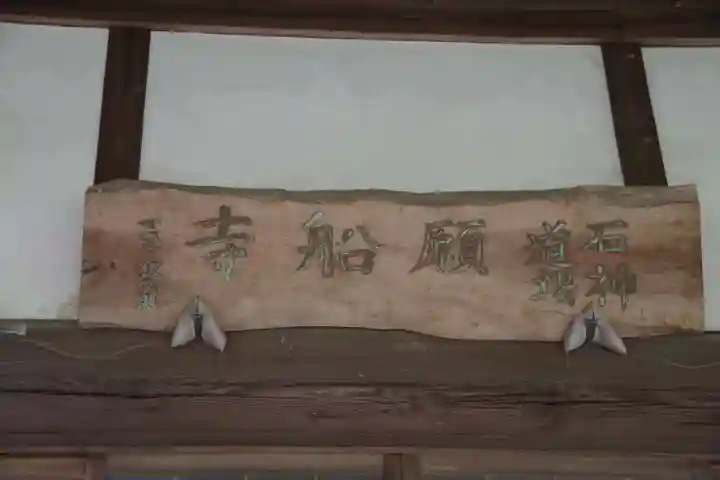 石神
道場
願船寺